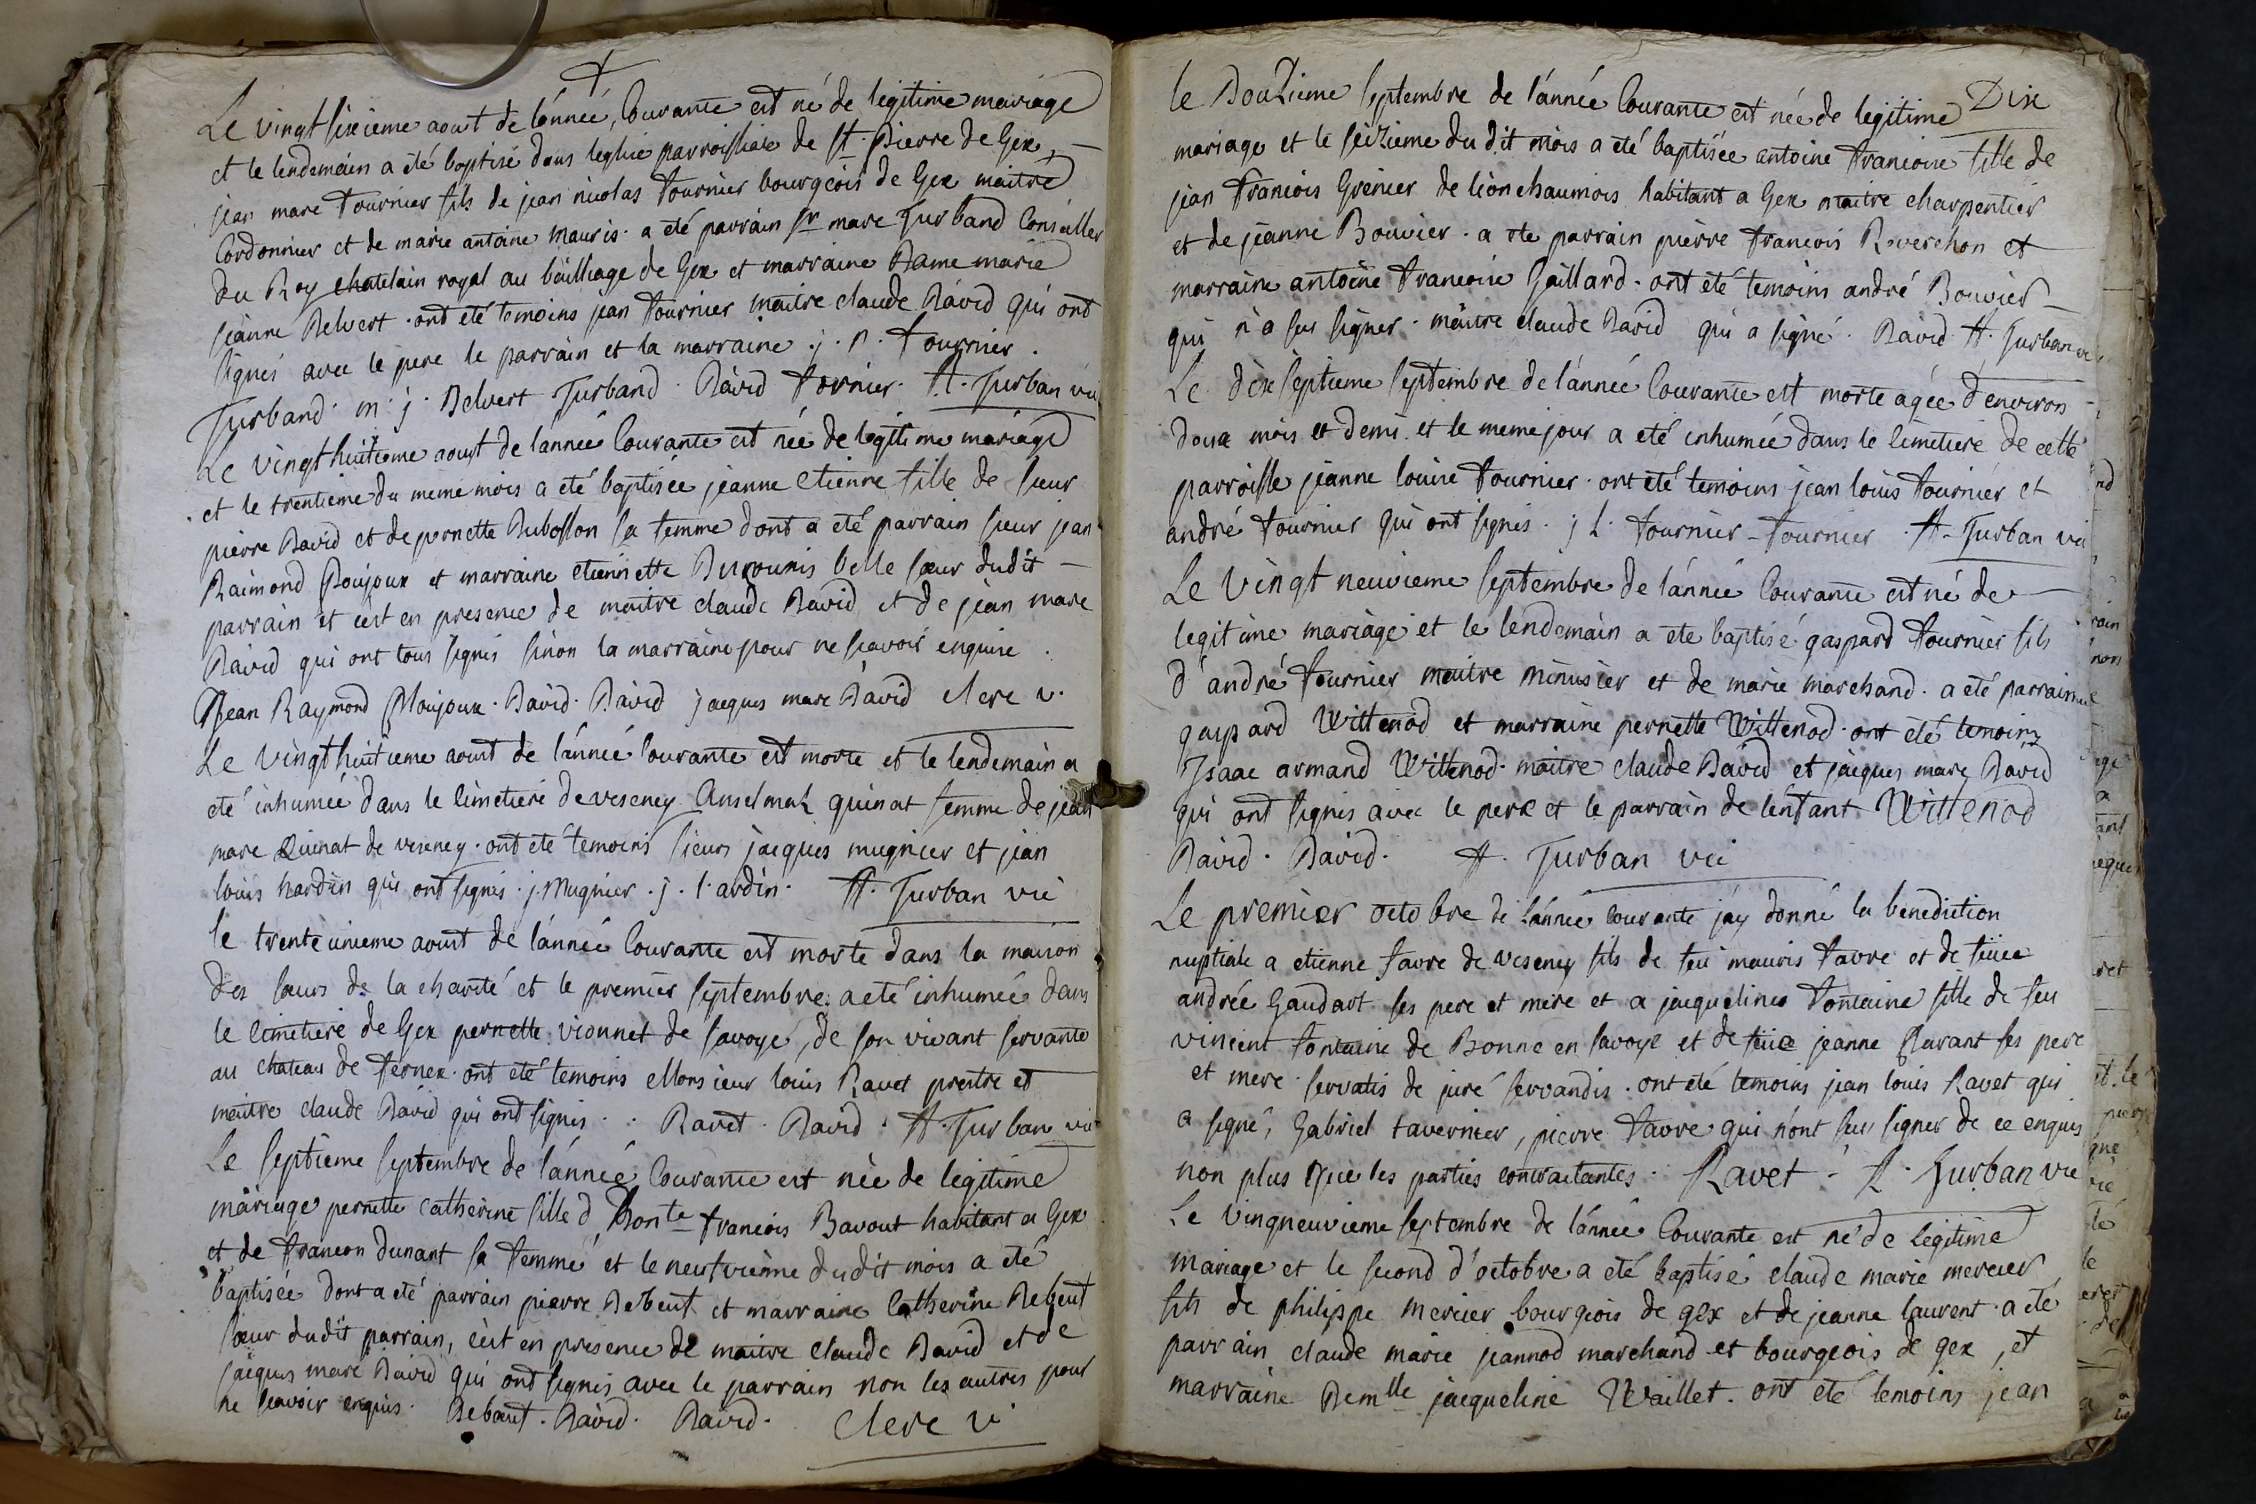 Le vingt sixieme aoust de l'année courante est né de legitime mariage
et le lendemain a été baptisé dans leglise parroissiale de St. Pierre de Gex,
jean marc tournier fils de jean nicolas tournier bourgeois de Gex maitre
Cordonnier et de marie antoine mauris. a été parrain Sr marc Turband Conseiller
du Roy chatelain royal au bailliage de Gex et marraine Dame marie
jeanne Delvert. ont été temoins jean tournier maitre claude David qui ont
signés avec le pere le parrain et la marraine. j. n. tournier.
Turband. m. j. Delvert Turband. David tornier. A. Turban vic
Le vingt huitieme aoust de l'année Courante est née de legitime mariage
et le trentieme du meme mois a été baptisée jeanne etienne fille de sieur
pierre David et de pernette Dubosson sa femme dont a été parrain sieur jean
Raimond Poujoux et marraine etiennette belle sœur dudit
parrain et c'est en presence de maitre claude David et de jean marc
David qui ont tous signés sinon la marraine pour ne scavoir enquise.
Jean Raymond Ploujoux. David. David jacques marc David clerc v.
Le vingt huitieme aoust de l'année courante est morte et le lendemain a
été inhumée dans le cimetiere de veseney Anselmaz quinat femme de jean
marc Quinat de veseney. ont été temoins sieurs jacques mugnier et jean
louis hardin qui ont signés. j. Mugnier. j. l. ardin. A. Turban vic
le trente unieme aoust de l'année Courante est morte dans la maison
des sœurs de la charité et le premier septembre a été inhumée dans
le cimetiere de Gex pernette vionnet de savoye, de son vivant servante
au chateau de fernex. ont été temoins Monsieur louis Ravet prestre et
maitre claude David qui ont signés. Ravet. David. A. Turban vic
Le septieme septembre de l'année Courante est née de legitime
mariage pernette catherine fille d'honte francois Bavout habitant a Gex
et de francon dunant sa femme et le neufvieme dudit mois a été
baptisée dont a été parrain pierre Debeut et marraine Catherine Debeut
sœur dudit parrain, c'est en presence de maitre claude David et de
jacques marc David qui ont signés avec le parrain non les autres pour
ne scavoir enquis. Debaut. David. David. Clerc v
le Douzieme septembre de l'année Courante est née de legitime Dix
mariage et le seizieme du dit mois a été baptisée antoine francoise fille de
jean francois Grenier de lionchaumois habitant a Gex maitre charpentier
et de jeanne Bouvier. a été parrain pierre francois Reverchon et
marraine antoine francoise Gaillard. ont été temoins andré Bouvier
qui n'a sus signer. maitre claude David qui a signé. David. A. Turban vic
Le dix septieme septembre de l'année Courante est morte agée d'environ
douze mois et demi. et le meme jour a été inhumée dans le cimetiere de cette
parroisse jeanne louise tournier. ont été temoins jean louis tournier et
andré tournier qui ont signés. j L. tournier - tournier. A. Turban vic
Le Vingt neuvieme septembre de l'année Courante est né de
legitime mariage et le lendemain a été baptisé gaspard tournier fils
d'andré tournier maitre minusier et de marie marchand. a été parrain
gaspard Wittenod et marraine pernette Wittenod. ont été temoins
Isaac armand Wittenod. maitre claude David et jacques marc David
qui ont signés avec le pere et le parrain de l'enfant Wittenod
David. David. A. Turban vic
Le premier octobre de l'année courante j'ay donné la benediction
nuptiale a etienne favre de veseney fils de feu mauris favre et de feüe
andrée Gaudart ses pere et mere et a jacqueline fontaine fille de feu
vincent fontaine de Bonne en savoye et de feüe jeanne ses pere
et mere servatis de juré servandis. ont été temoins jean louis Ravet qui
a signé, Gabriel tavernier, pierre favre qui n'ont sus signer de ce enquis
non plus que les parties contractantes. Ravet. A. Turban vic
Le vingneuvieme septembre de l'année Courante est né de legitime
mariage et le second d'octobre a été baptisé claude marie mercier
fils de philippe mercier bourgeois de gex et de jeanne laurent. a été
parrain claude marie jeannod marchand et bourgeois de gex, et
marraine Demlle jacqueline Waillet. ont été temoins jean